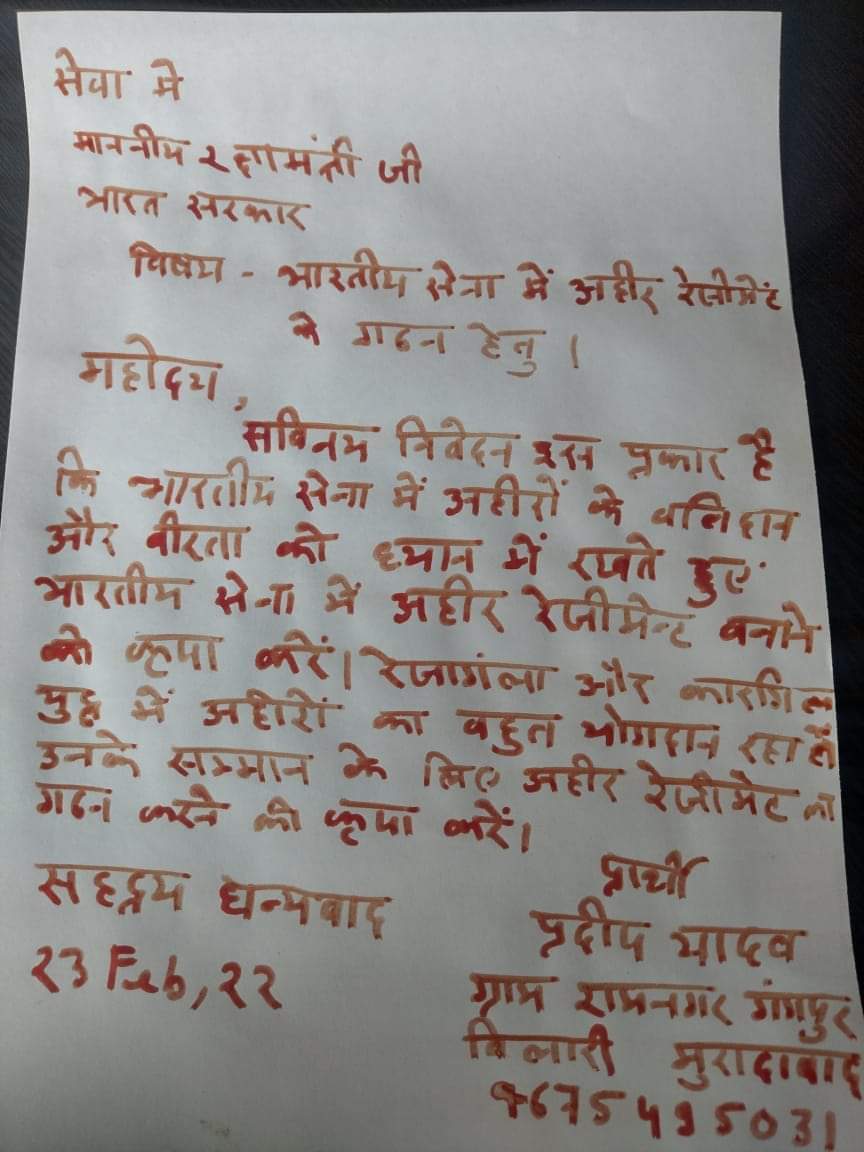 सेवा में
माननीय रक्षामंत्री जी
भारत सरकार
विषय - भारतीय सेना में अहीर रेजीमेंट
के गठन हेतु।
महोदय,
सविनय निवेदन इस प्रकार है
कि भारतीय सेना में अहीरों के बलिदान
और वीरता को ध्यान में रखते हुए
भारतीय सेना में अहीर रेजीमेन्ट बनाने
की कृपा करें। रेजागंला और कारगिल
युद्ध में अहीरों का बहुत योगदान रहा है
उनके सम्मान के लिए अहीर रेजीमेंट का
गठन करने की कृपा करें।
सहृदय धन्यवाद
23 Feb, 22
प्रार्थी
प्रदीप यादव
ग्राम रामनगर गंगपुर
बिलारी मुरादाबाद
9675495031